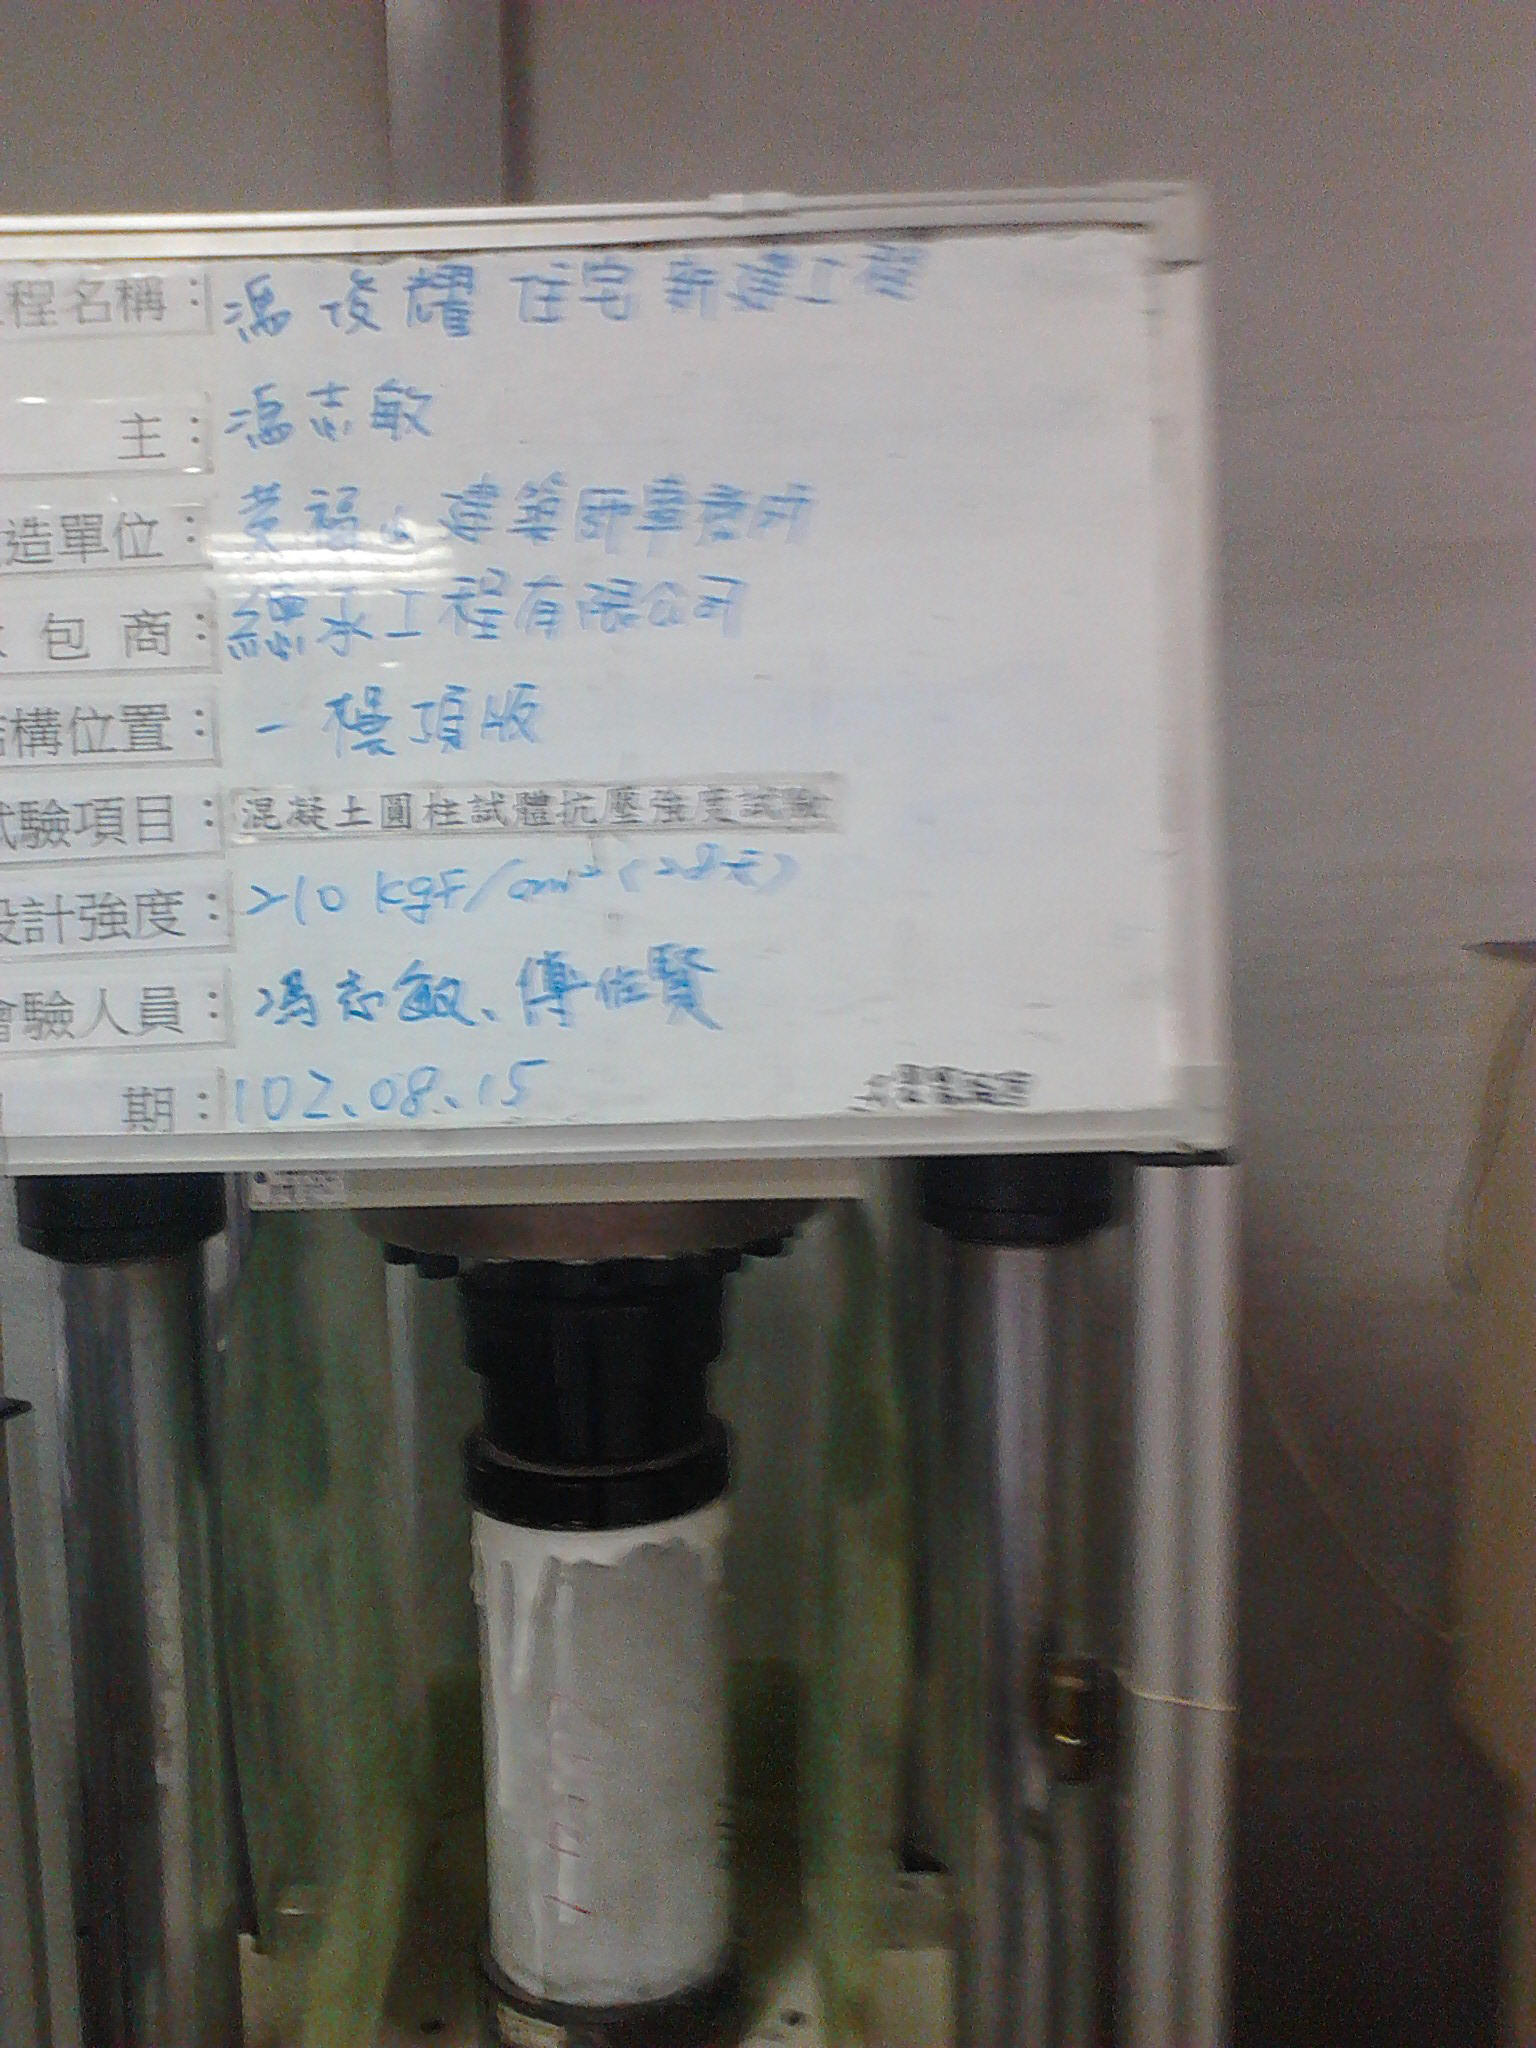 程名稱：馮俊耀住宅新建工程
主：馮志敏
造單位：黃福 建築師事務所
包商：德承工程有限公司
構位置：一樓頂版
試驗項目：混凝土圓柱試體抗壓強度試驗
設計強度：210 kgf/cm²(28天)
會驗人員：馮志敏、傅佐賢
期：102.08.15